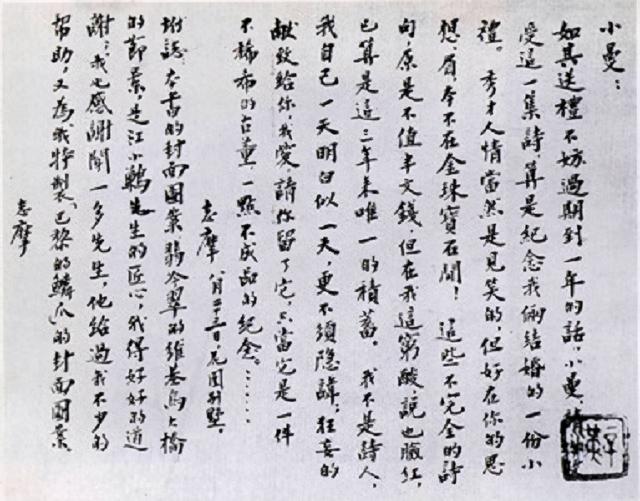 小曼：
如其送禮不妨過期到一年的話，小曼，請
受這一集詩，算是紀念我倆結婚的一份小
禮。秀才人情當然是見笑的，但好在你的思
想，眉，本不在金珠寶石間！這些不完全的詩
句，原是不值半文錢，但在我這窮酸說也臉紅，
已算是這三年來唯一的積蓄。我不是詩人，
我自己一天明白似一天，更不須隱諱；狂妄的
獻致給你，我愛，請你留了它，只當它是一件
不稀希的古董，一點不成品的紀念。……
志摩 八月二十三日花園別墅。
附誌：本書的封面圖案翡冷翠的維基烏大橋
的節景，是江小鶼先生的匠心，我得好好的道
謝；我也感謝聞一多先生，他給過我不少的
幫助，又為我特製巴黎的鱗爪的封面圖案
志摩